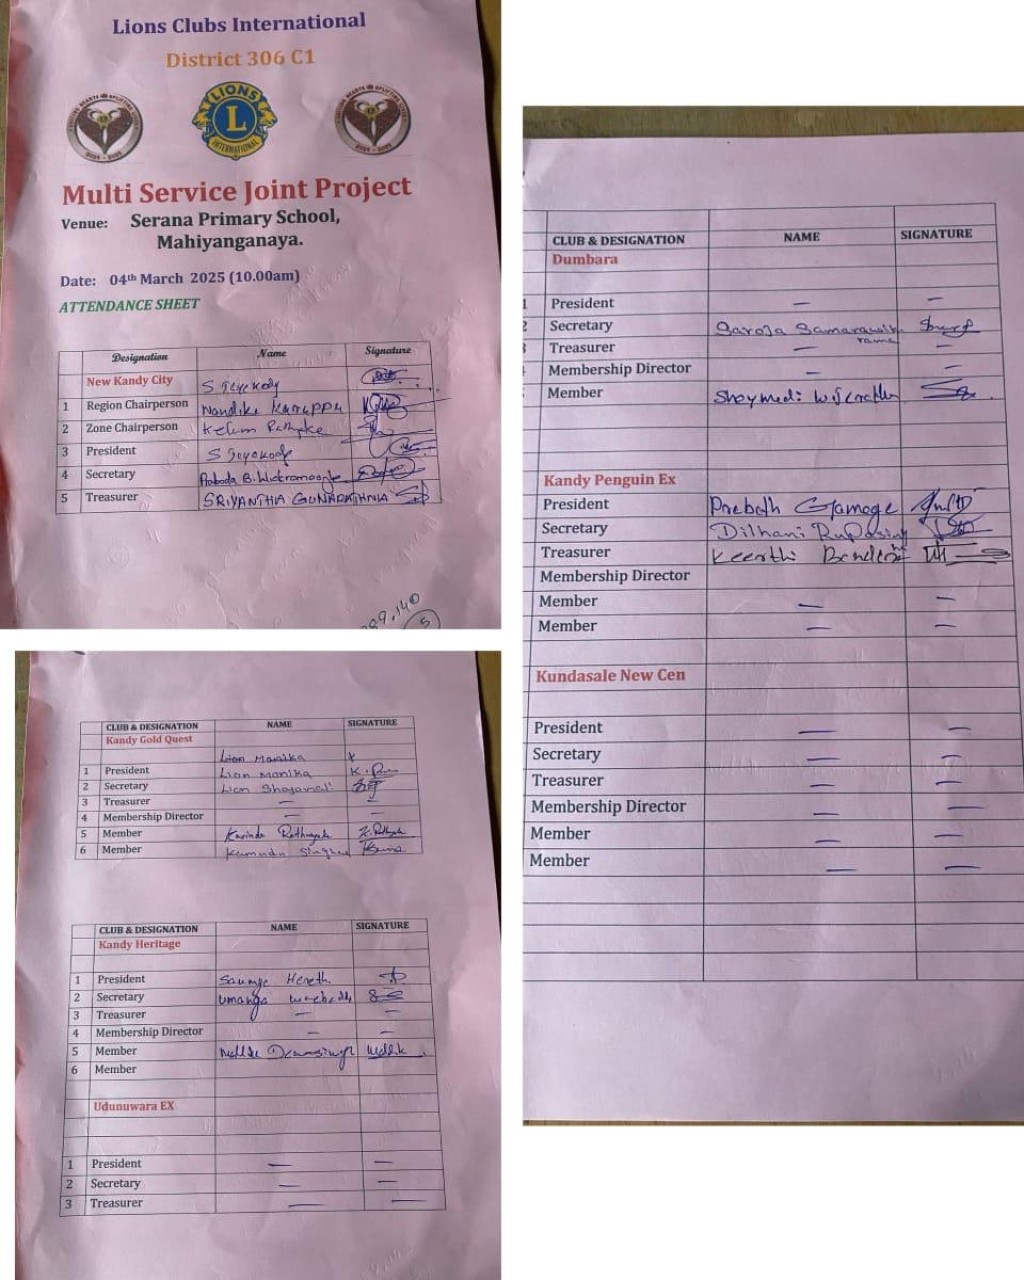 Lions Clubs International
District 306 C1
LIONS
L
INTERNATIONAL
2024 - 2025
2024 - 2025
Multi Service Joint Project
Venue: Serana Primary School,
Mahiyanganaya.
Date: 04th March 2025 (10.00am)
ATTENDANCE SHEET
Designation Name Signature
New Kandy City S Jeyekody
1 Region Chairperson Nandika Karuppu
2 Zone Chairperson Kelum
3 President S Jeyekody
4 Secretary Praboda B. Wickramasinghe
5 Treasurer SRIYANTHA GUNARATHNA
5
CLUB & DESIGNATION NAME SIGNATURE
Kandy Gold Quest
Lion Manika
1 President Lion Manika
2 Secretary Lion
3 Treasurer —
4 Membership Director — —
5 Member Kavinda Rathnayak
6 Member Kumudu
CLUB & DESIGNATION NAME SIGNATURE
Kandy Heritage
1 President Herath
2 Secretary Umanga
3 Treasurer — —
4 Membership Director — —
5 Member
6 Member
Udunuwara EX
1 President — —
2 Secretary — —
3 Treasurer — —
CLUB & DESIGNATION NAME SIGNATURE
Dumbara
1 President — —
2 Secretary Saroja Samarawik
rama
Treasurer — —
Membership Director — —
Member
Kandy Penguin Ex
President Prebath Gamage
Secretary Dilhani Rupasing
Treasurer Keerthi Bandera
Membership Director
Member — —
Member — —
Kundasale New Cen
President — —
Secretary — —
Treasurer — —
Membership Director — —
Member — —
Member — —